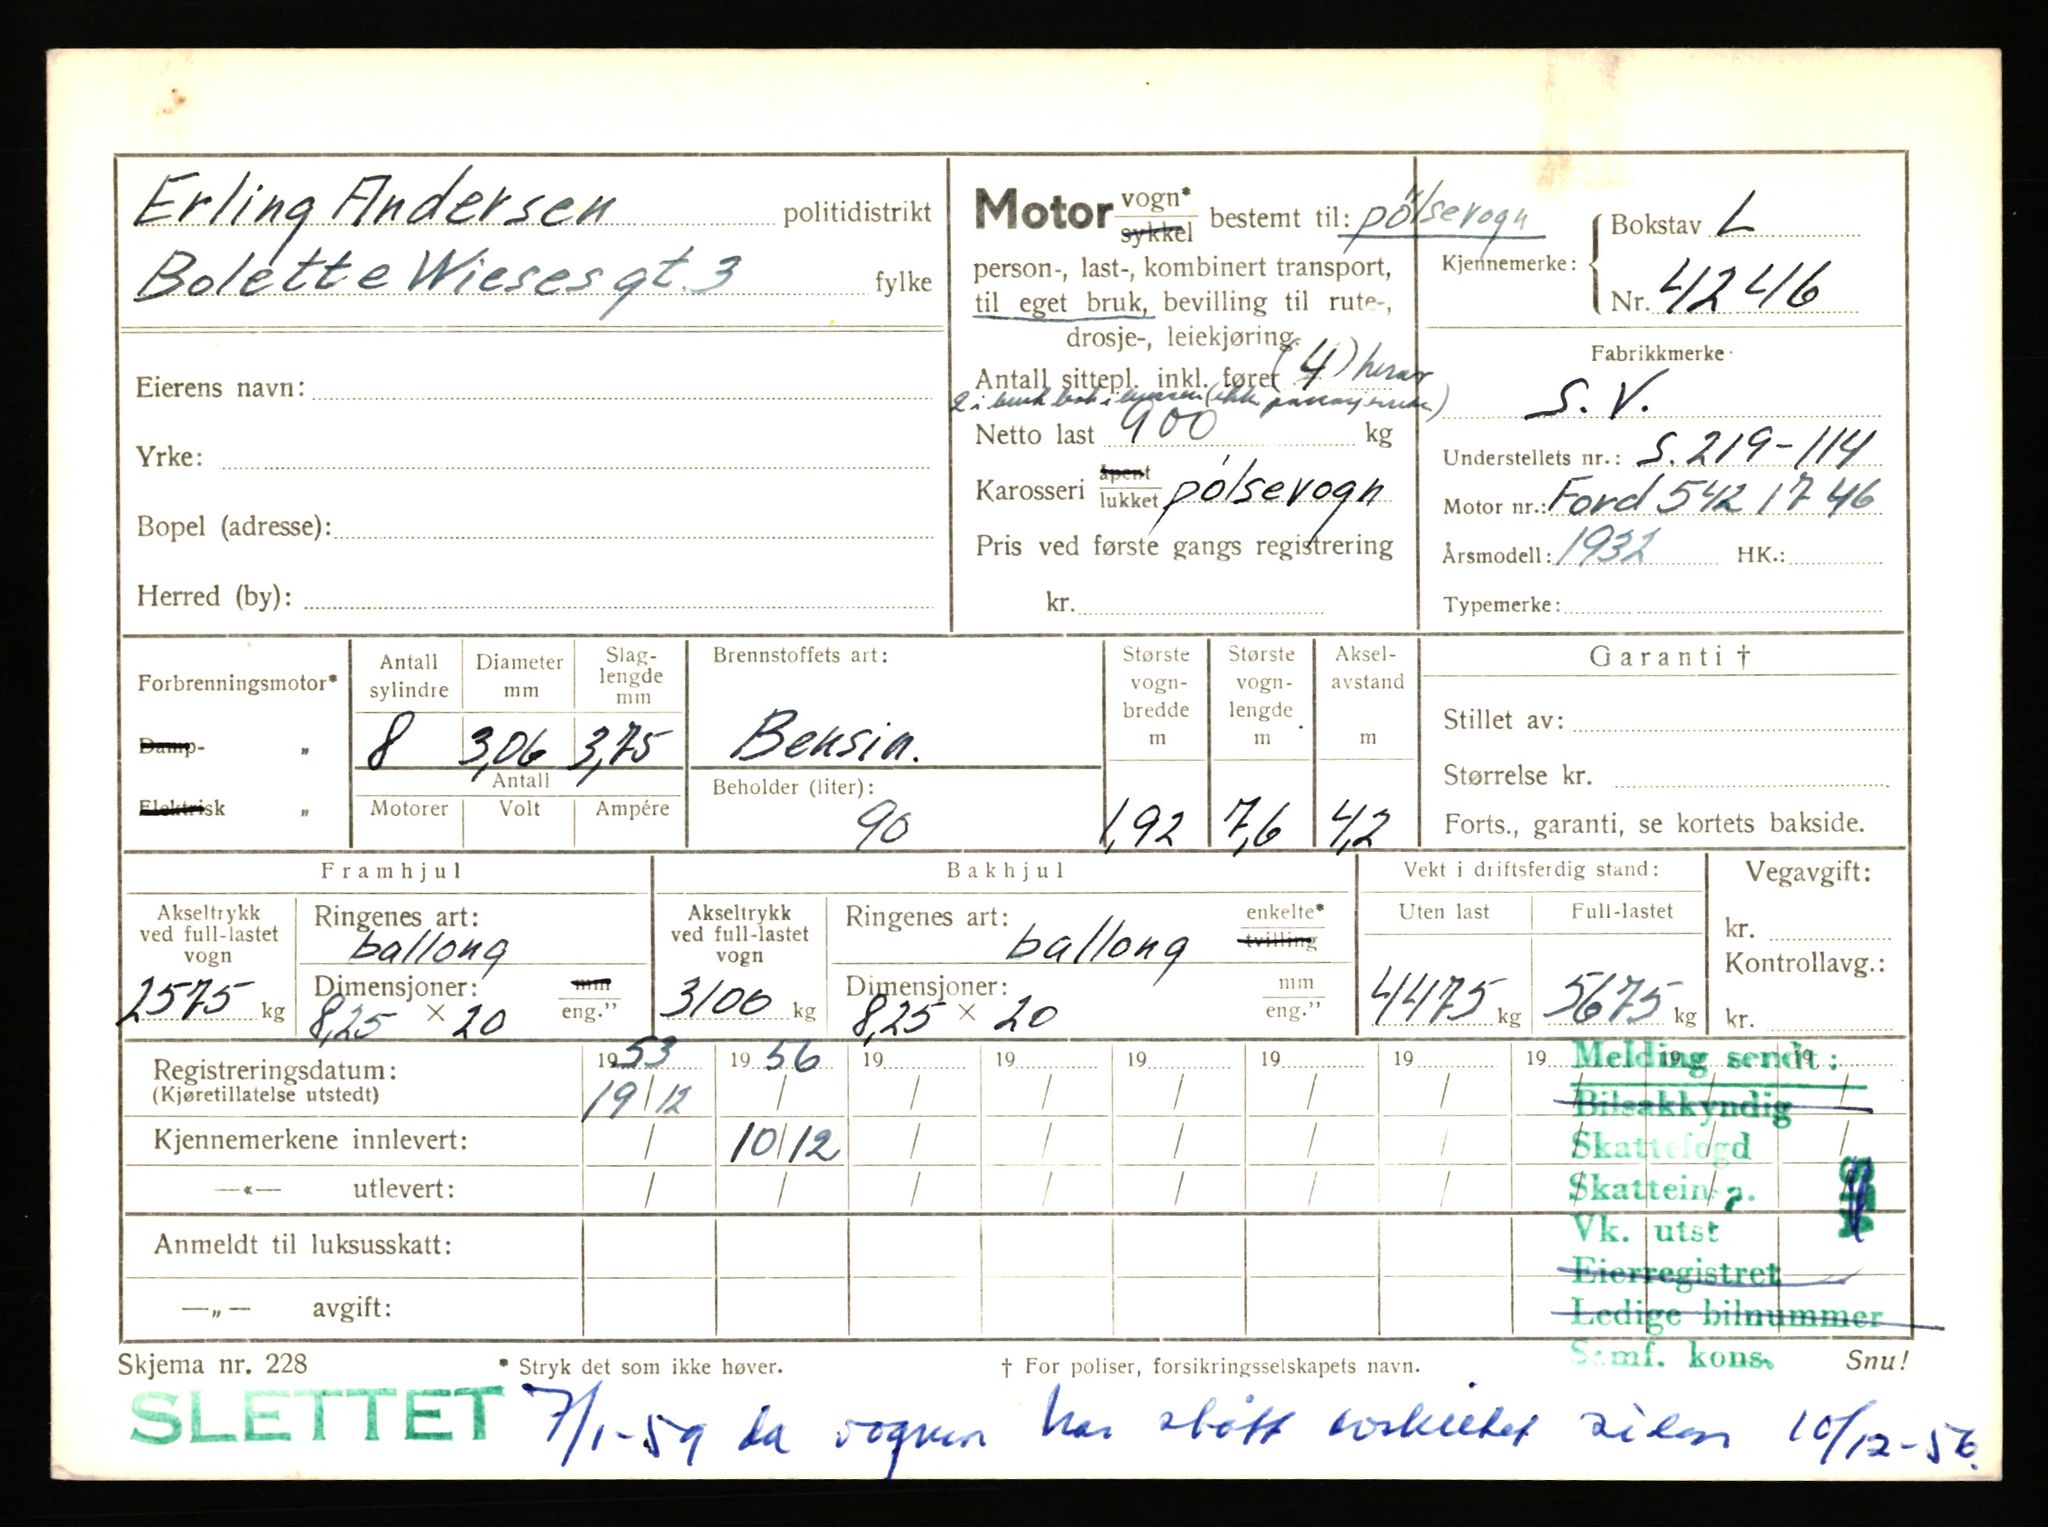 Erling Andersen politidistrikt
Bolette Wieses gt. 3 fylke
Eierens navn:
Yrke:
Bopel (adresse):
Herred (by):
Motor vogn* sykkel bestemt til: pølsevogn
person-, last-, kombinert transport,
til eget bruk, bevilling til rute-,
drosje-, leiekjøring.
Antall sittepl. inkl. fører (4) herav
2 i
Netto last 900 kg
Karosseri åpent lukket pølsevogn
Pris ved første gangs registrering
kr.
Kjennemerke: Bokstav L
Nr. 41246
Fabrikkmerke
S. V.
Understellets nr.: S. 219-114
Motor nr.: Ford 5421746
Årsmodell: 1932 HK.:
Typemerke:
Forbrenningsmotor*
Damp- „
Elektrisk „
Antall sylindre
8
Diameter mm
3,06
Slag-lengde mm
3,75
Antall
Motorer Volt Ampére
Brennstoffets art:
Bensin.
Beholder (liter):
90
Største vogn-bredde m
1,92
Største vogn-lengde m
7,6
Aksel-avstand m
4,2
Garanti †
Stillet av:
Størrelse kr.
Forts., garanti, se kortets bakside.
Framhjul
Akseltrykk ved full-lastet vogn
2575 kg
Ringenes art:
ballong
Dimensjoner: mm eng."
8,25 × 20
Bakhjul
Akseltrykk ved full-lastet vogn
3100 kg
Ringenes art: enkelte* tvilling
ballong
Dimensjoner: mm eng."
8,25 × 20
Vekt i driftsferdig stand:
Uten last
4475 kg
Full-lastet
5675 kg
Vegavgift:
kr.
Kontrollavg.:
kr.
Registreringsdatum: 1953 1956 19 19 19 19 19 19 19 19
(Kjøretillatelse utstedt) 19/12 / / / / / / / / /
Kjennemerkene innlevert: / 10/12 / / / / / / / /
—«— utlevert: / / / / / / / / / /
Anmeldt til luksusskatt:
—„— avgift:
Melding sendt:
Bilsakkyndig
Skattefogd
Skattein
Vk. utst
Eierregistret
Ledige bilnummer
Samf. kons.
Skjema nr. 228 * Stryk det som ikke høver. † For poliser, forsikringsselskapets navn. Snu!
SLETTET 7/1-59 da vognen har stått avskiltet siden 10/12-56.